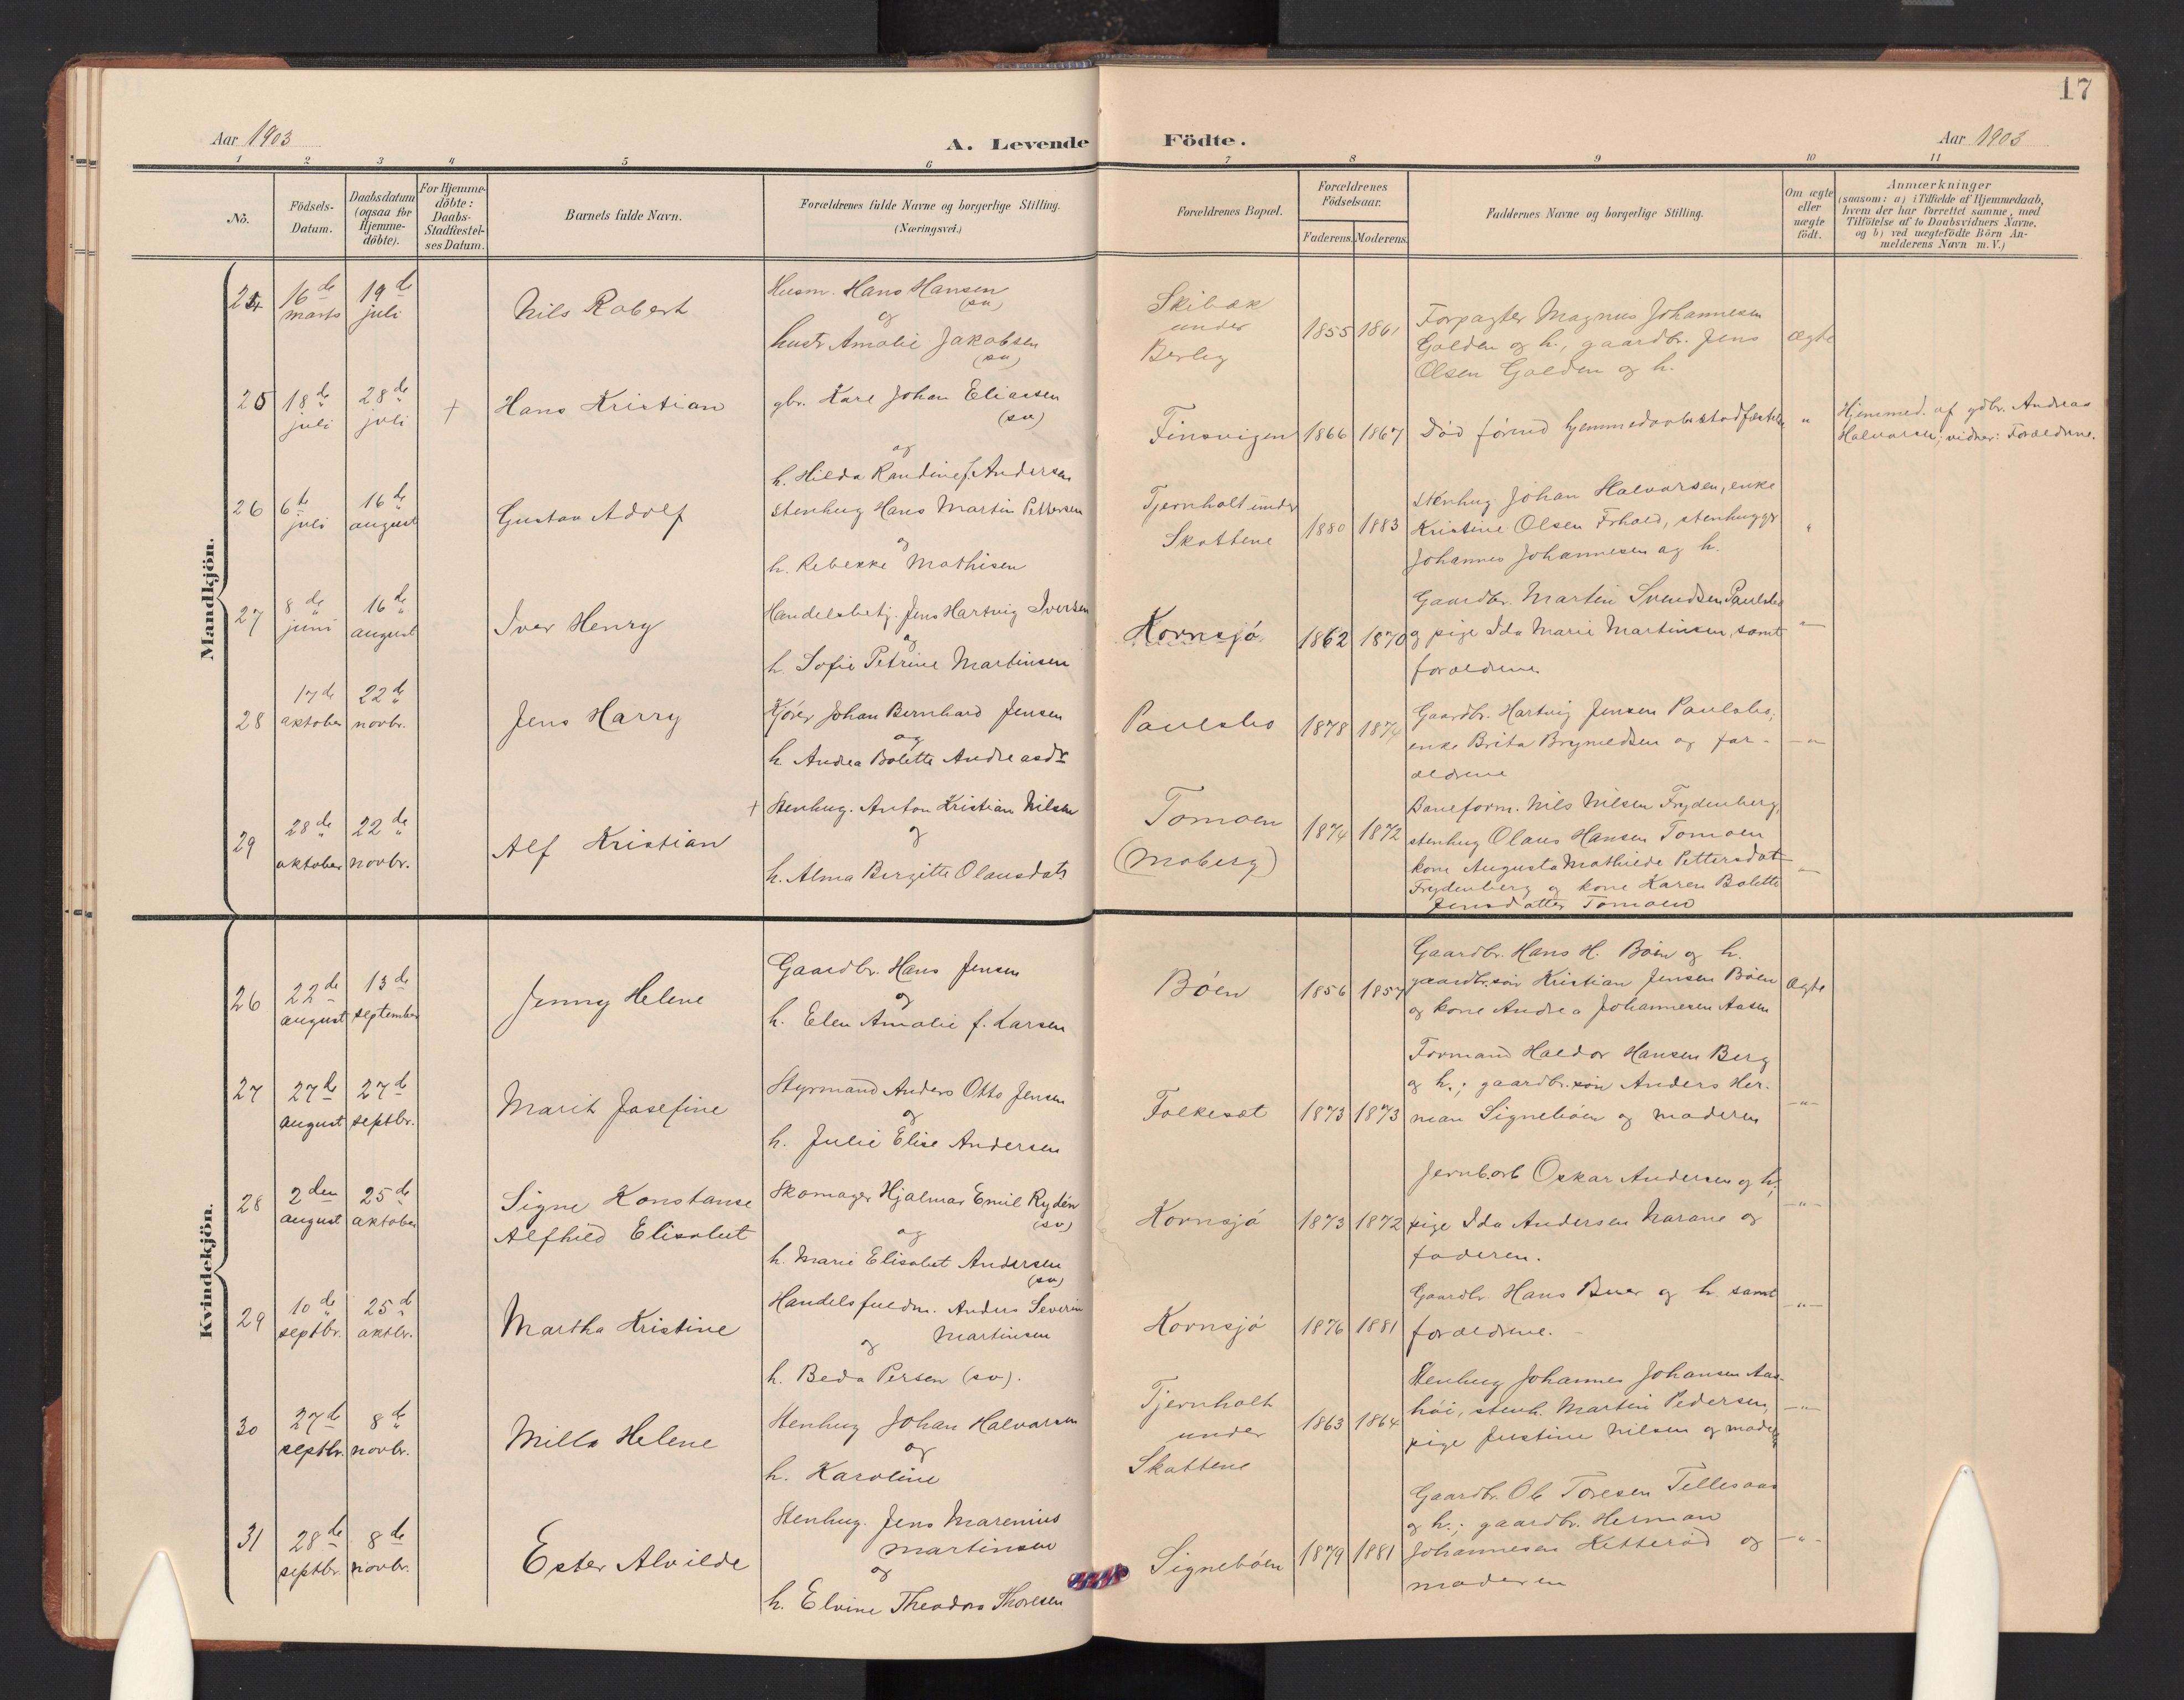 17
Aar 1903
A. Levende Födte.
Aar 1903
1 2 3 4 5 6 7 8 9 10 11
No.
Födsels-
Datum.
Daabsdatum
(ogsaa for
Hjemme-
döbte).
For Hjemme-
döbte:
Daabs-
Stadfæstel-
ses Datum.
Barnets fulde Navn.
Forældrenes fulde Navne og borgerlige Stilling.
(Næringsvei.)
Forældrenes Bopæl.
Forældrenes
Födselsaar.
Faderens. Moderens.
Faddernes Navne og borgerlige Stilling.
Om ægte
eller
uægte
födt.
Anmærkninger
(saasom: a) i Tilfælde af Hjemmedaab,
hvem der har forrettet samme, med
Tilföielse af to Daabsvidners Navne,
og b) ved uægtefödte Börn An-
melderens Navn m. V.)
Mandkjön.
24
16de
marts
19de
juli
Nils Robert
Husm. Hans Hansen
(sv)
og
hustr Amalie Jakobsen
(sv)
Skibæk
under
Berby
1855 1861
Forpagter Magnus Johannesen
Galden og h., gaardbr. Jens
Olsen Galden og h.
ægte
25
18de
juli
28de
juli
+
Hans Kristian
gbr. Karl Johan Eliassen
(sv)
og
h. Hilda Randine f. Andersen
Finsvigen
1866 1867
Död förend hjemmedaabsstadfæstelse
"
Hjemmed. af gdbr. Andreas
Halvorsen; vidner: Forældrene.
26
6te
juli
16de
august
Gustav Adolf
Stenhug Hans Martin Pettersen
og
h. Rebekke Mathisen
Tjernholt under
Skottene
1880 1883
Stenhug Johan Halvorsen, enke
Kristine Olsen, stenhugger
Johannes Johannesen og h.
"
27
8de
juni
16de
august
Iver Henry
Handelsbetj. Jens Hartvig Iversen
og
h. Sofie Petrine Martinsen
Kornsjö
1862 1870
Gaardbr. Martin Svendsen Paulsbo
og pige Ida Marie Martinsen, samt
forældrene
"
28
17de
oktober
22de
novbr.
Jens Harry
Kjörer Johan Bernhard Jensen
og
h. Andrea Bolette Andreasdr
Paulsbo
1878 1874
Gaardbr. Hartvig Jensen Paulsbo;
enke Brita Brynildsen og for-
ældrene
-"-
29
28de
oktober
22de
novbr.
Alf Kristian
+ Stenhug. Anton Kristian Nilsen
og
h. Alma Birgitte Olausdatr
Tomoen
(Moberg)
1874 1872
Baneform. Nils Nilsen Frydenberg,
stenhug Olaus Hansen Tomoen
kone Augusta Mathilde Pettersdat
Frydenberg og kone Karen Bolette
Jensdatter Tomoen
-"-
Kvindekjön.
26
22de
august
13de
september
Jenny Helene
Gaardbr. Hans Jensen
og
h. Elen Amalie f. Larsen
Böen
1856 1857
Gaardbr. Hans H. Böen og h.
gaardbr.sön Kristian Jensen Böen
og kone Andrea Johannesen Aasen
ægte
27
27de
august
27de
septbr.
Marit Josefine
Styrmand Anders Otto Jensen
og
h. Julie Elise Andersen
Folkesøt
1873 1873
Formand Haldor Hansen Berg
og h.; gaardbr.sön Anders Her-
man Signeböen og moderen
-"-
28
2den
august
25de
oktober
Signe Konstanse
Alfhild Elisabet
Skomager Hjalmar Emil Rydén
(sv)
og
h. Marie Elisabet Andersen
(sv)
Kornsjö
1873 1872
Jernb.arb Oskar Andersen og h;
pige Ida Andersen Narane og
faderen.
-"-
29
10de
septbr.
25de
oktbr.
Martha Kristine
Handelsfuldm. Anders Severin
Martinsen
og
h. Beda Persen (sv).
Kornsjö
1876 1881
Gaardbr. Hans Buer og h. samt
forældrene.
-"-
30
27de
septbr.
8de
novbr.
Milla Helene
Stenhug Johan Halvorsen
og
h. Karoline
Tjernholt
under
Skottene
1863 1864
Stenhug Johannes Johansen Aas-
höi, stenh. Martin Pedersen,
pige Justine Nilsen og moderen
-"-
31
28de
septbr.
8de
novbr.
Ester Alvilde
Stenhug. Jens Marenius
Martinsen
og
h. Elvine Theodora Thoresen
Signeböen
1879 1881
Gaardbr. Ole Toresen Tellesaas
og h.; gaardbr. Herman
Johannesen Ketteröd og
moderen
-"-